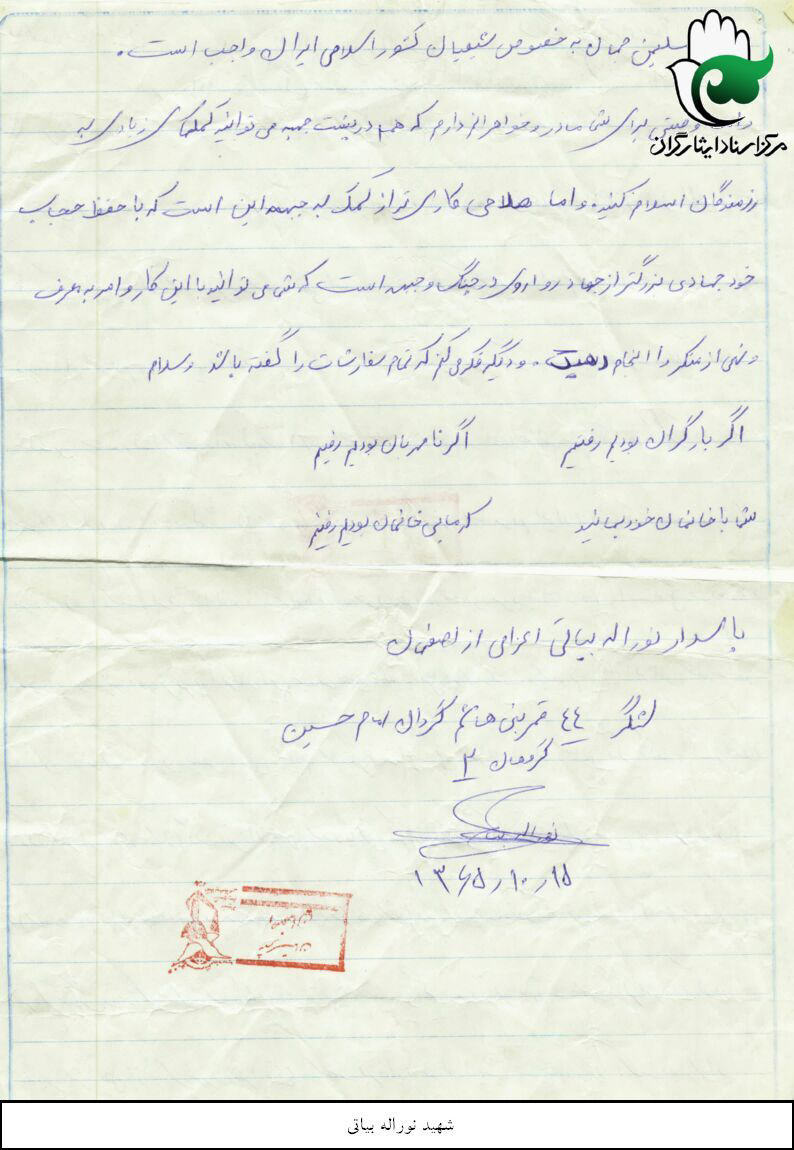 مسلمین جهان به خصوص شیعیان کشور اسلامی ایران واجب است.
وصیتی برای شما مادر و خواهرانم دارم که هم در پشت جبهه می توانید کمکهای زیادی به
مرکز اسناد ایثارگران
رزمندگان اسلام کنید. و اما سلاحی کاری تر از کمک به جبهه این است که با حفظ حجاب
خود جهادی بزرگتر از جهاد رو اروی در جنگ و جبهه است که شما می توانید با این کار و امر به معرف
و نهی از منکر را انجام دهید. و دیگه فکر می کنم که تمام سفارشات را گفته باشم وسلام
اگر بار گران بودیم رفتیم اگر نا مهربان بودیم رفتیم
شما با خانمان خود بمانید که مابی خانمان بودیم رفتیم
پاسدار نوراله بیاتی اعزامی از اصفهان
لشگر ٤٤ قمر بنی هاشم گردان امام حسین
گروهان ۳
نوراله بیاتی
۱۳۶۵/۱۰/۱۵
شهید نوراله بیاتی